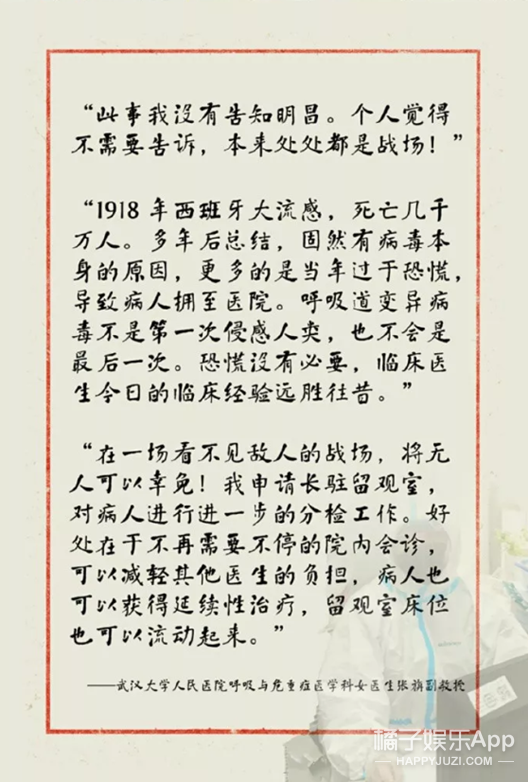 “此事我没有告知明昌。个人觉得
不需要告诉，本来处处都是战场！”
“1918 年西班牙大流感，死亡几千
万人。多年后总结，固然有病毒本
身的原因，更多的是当年过于恐慌，
导致病人拥至医院。呼吸道变异病
毒不是第一次侵感人类，也不会是
最后一次。恐慌没有必要，临床医
生今日的临床经验远胜往昔。”
“在一场看不见敌人的战场，将无
人可以幸免！我申请长驻留观室，
对病人进行进一步的分检工作。好
处在于不再需要不停的院内会诊，
可以减轻其他医生的负担，病人也
可以获得延续性治疗，留观室床位
也可以流动起来。”
——武汉大学人民医院呼吸与危重症医学科女医生张旃副教授
橘子娱乐App
HAPPYJUZI.COM